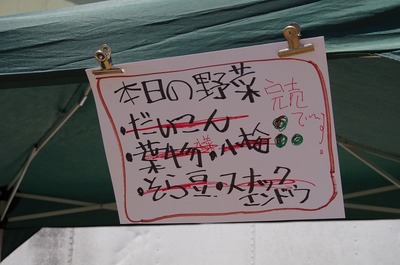 本日の野菜
完売でーす
・だいこん
・葉物・小梅
・そら豆・スナック
エンドウ